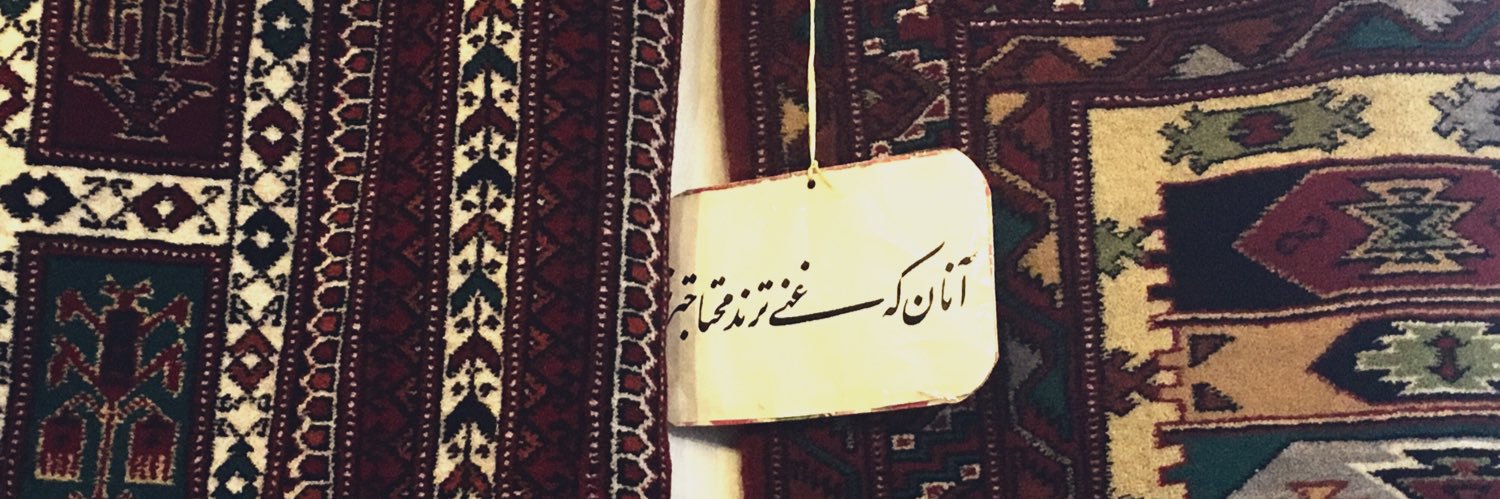 آنان که غنی‌ترند محتاج‌تر